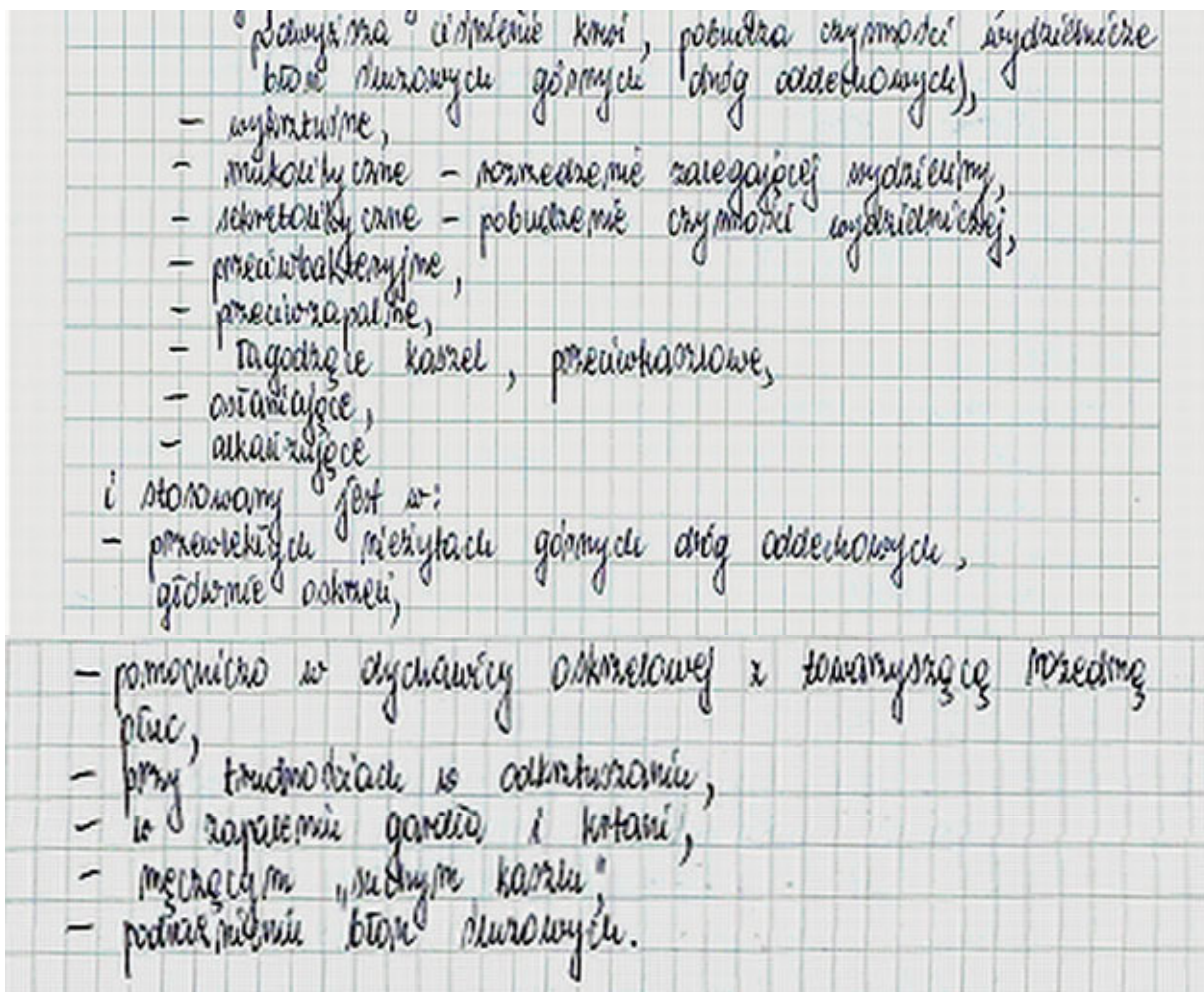 podwyższa ciśnienie krwi, pobudza czynności wydzielnicze
błon śluzowych górnych dróg oddechowych),
- wykrztuśne,
- mukolityczne - rozrzedzenie zalegającej wydzieliny,
- sekretolityczne - pobudzenie czynności wydzielniczej,
- przeciwbakteryjne,
- przeciwzapalne,
- łagodzące kaszel, przeciwkaszlowe,
- osłaniające,
- alkalizujące
i stosowany jest w:
- przewlekłych nieżytach górnych dróg oddechowych,
głównie oskrzeli,
- pomocniczo w dychawicy oskrzelowej z towarzyszącą rozedmą
płuc,
- przy trudnościach w odkrztuszaniu,
- w zapaleniu gardła i krtani,
- męczącym „suchym kaszlu",
- podrażnieniu błon śluzowych.